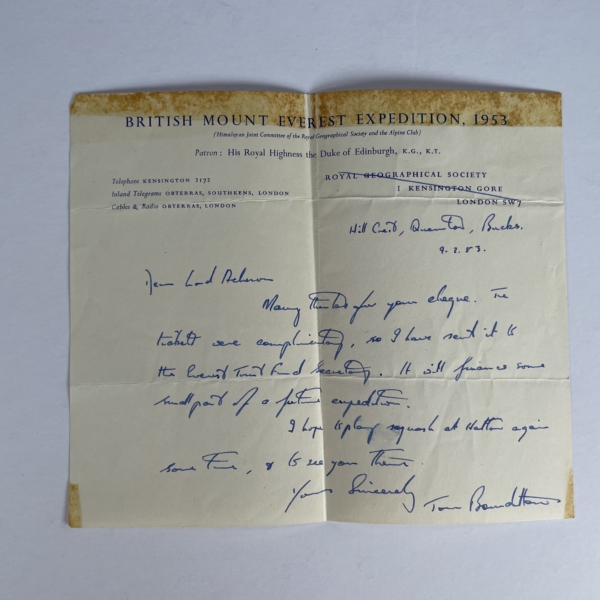 BRITISH MOUNT EVEREST EXPEDITION, 1953
(Himalayan Joint Committee of the Royal Geographical Society and the Alpine Club)
Patron: His Royal Highness the Duke of Edinburgh, K.G., K.T.
Telephone KENSINGTON 2172
Inland Telegrams OBTERRAS, SOUTHKENS, LONDON
Cables & Radio OBTERRAS, LONDON
ROYAL GEOGRAPHICAL SOCIETY
1 KENSINGTON GORE
LONDON SW7
Hill Crest, Quainton, Bucks.
Dear Lord
Many thanks for your cheque. The
tickets were complimentary, so I have sent it to
the Everest Trust Fund Secretary. It will finance some
small part of a future expedition.
I hope to play squash at Halton again
some time, & to see you there.
Yours Sincerely
Tom